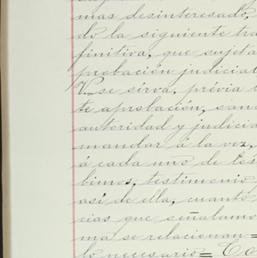 mas desinteresado,
do la siguiente tra
finitiva, que sujeta
probación judicial
V. se sirva, prévia
te aprobación, san
autoridad y judicia
mandar á la vez,
á cada uno de los
bimos, testimonio
así de ella, cuanto
cias que señalemo
ma se relacionan=
lo necesario=